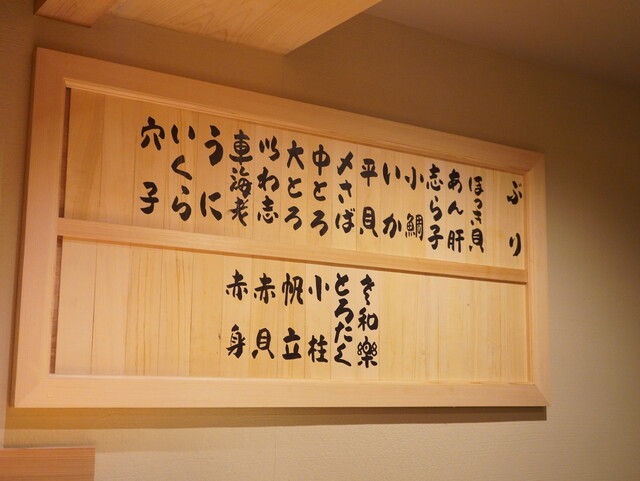 ぶり
ほっき貝
あん肝
志ら子
小鯛
いか
平貝
〆さば
中とろ
大とろ
以わ志
車海老
うに
いくら
穴子
さ和樂
とろたく
小柱
帆立
赤貝
赤身